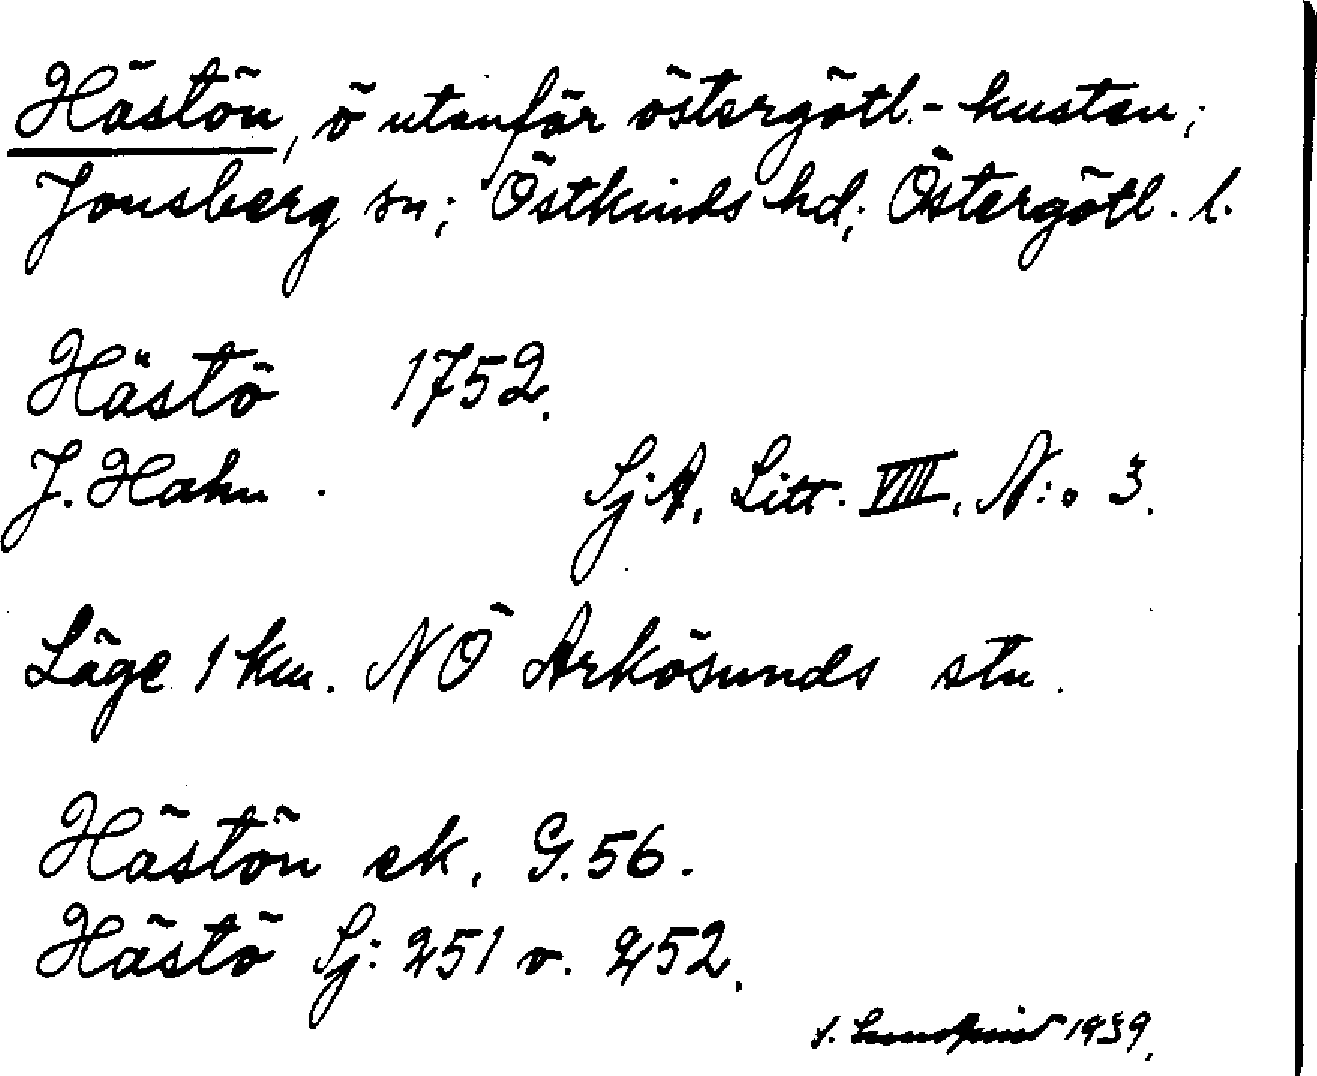 Hästön, ö utanför östergötl.-kusten;
Jonsberg sn; Östkinds hd; Östergötl. l.
Hästö 1752.
J. Hahn. SjA, Litt. VIII, N:o 3.
Läge 1 km. NÖ Arkösunds stn.
Hästön ek. G. 56.
Hästö Sj: 251 v. 252.
S. Lundqvist 1939.